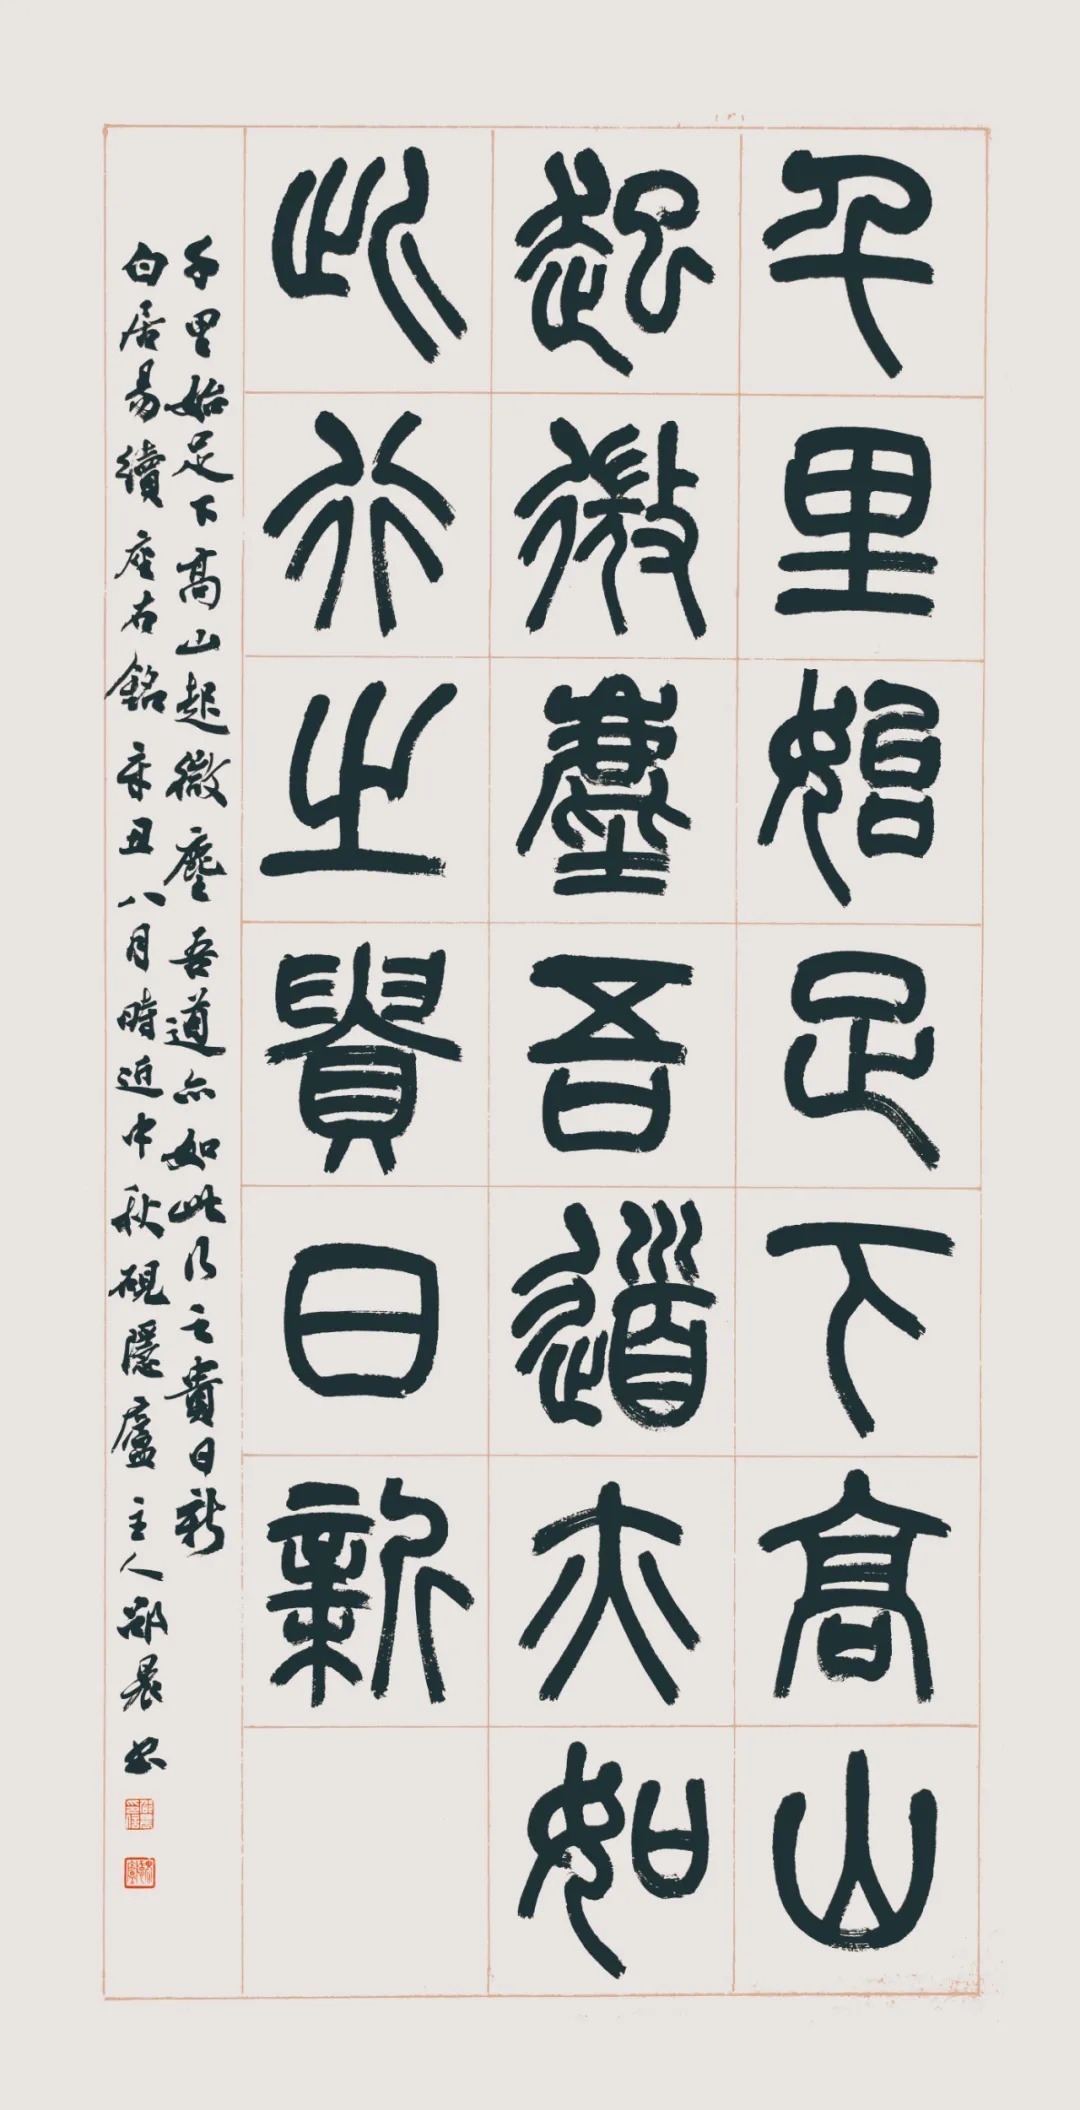 千里始足下高山
起微塵吾道亦如
此行之貴日新
千里始足下高山起微塵吾道亦如此行之貴日新
白居易續座右銘辛丑八月時近中秋硯隱廬主人鄒晨书